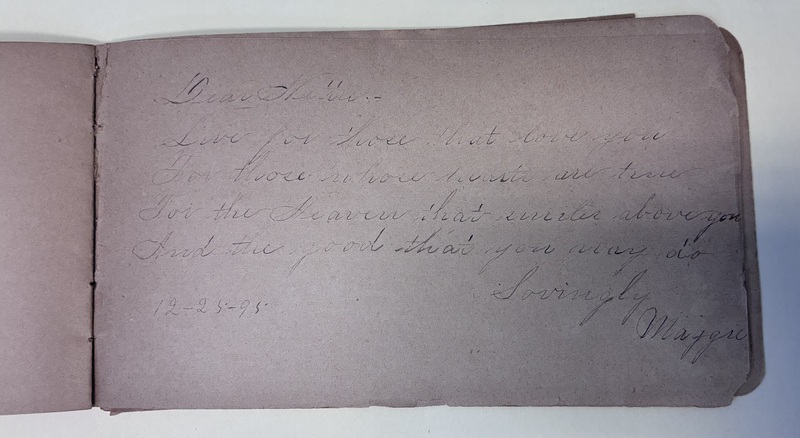 Dear
Live for those that love you
For those whose hearts are true
For the Heaven that smiles above you
And the good that you may do
Lovingly
12-25-95